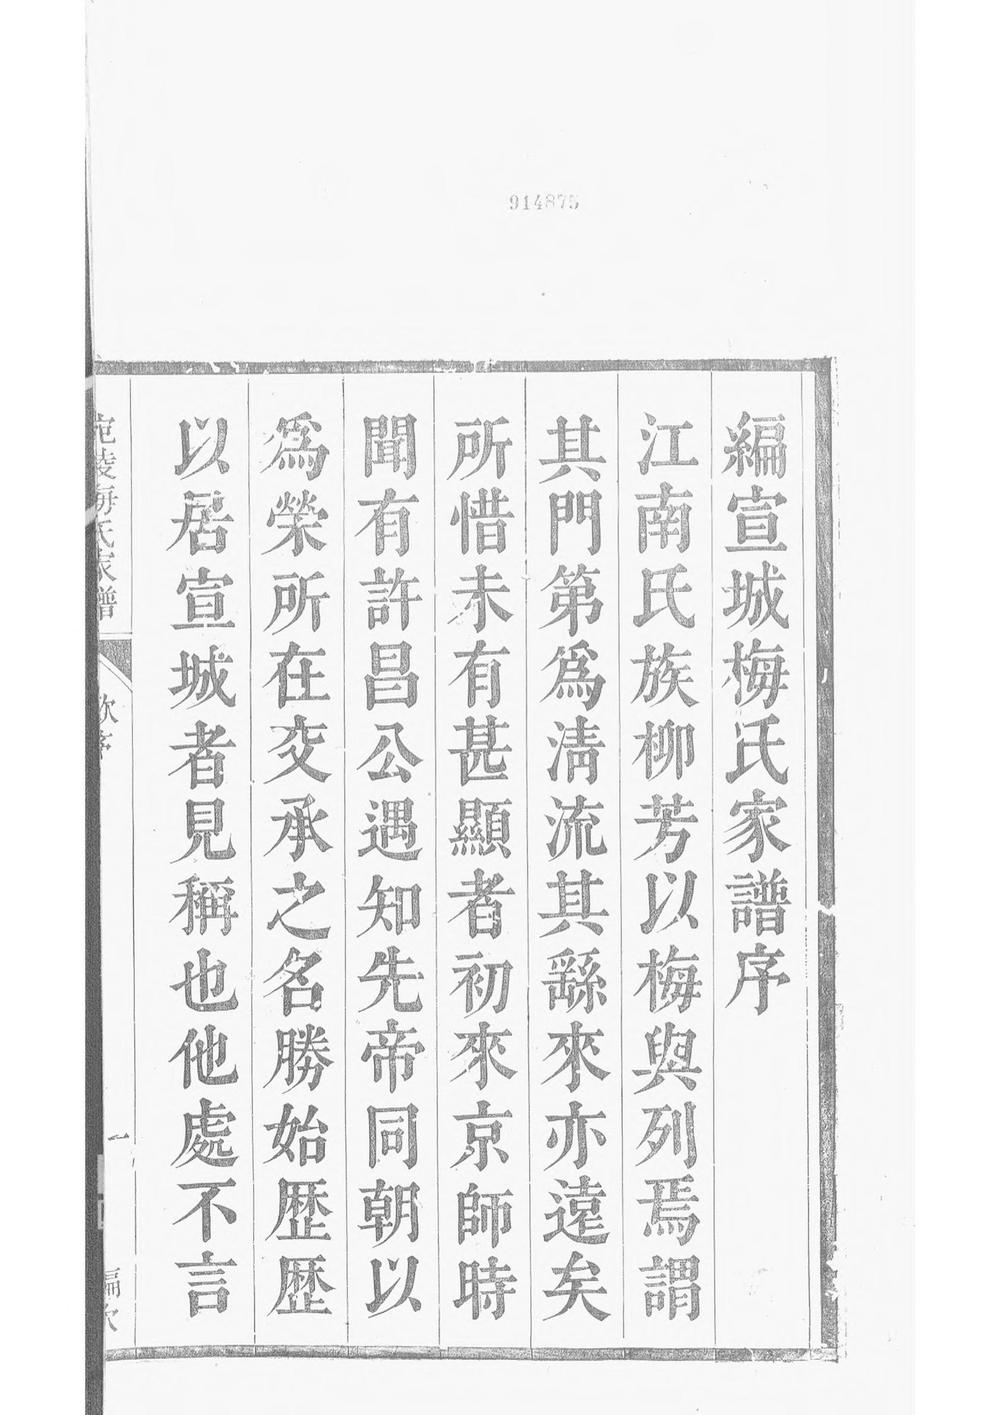 914875
編宣城梅氏家譜序
江南氏族柳芳以梅與列焉謂
其門第爲清流其繇來亦遠矣
所惜未有甚顯者初來京師時
聞有許昌公遇知先帝同朝以
爲榮所在交承之名勝始歴歴
以居宣城者見稱也他處不言
宛陵梅氏家譜
歐序
一
編次